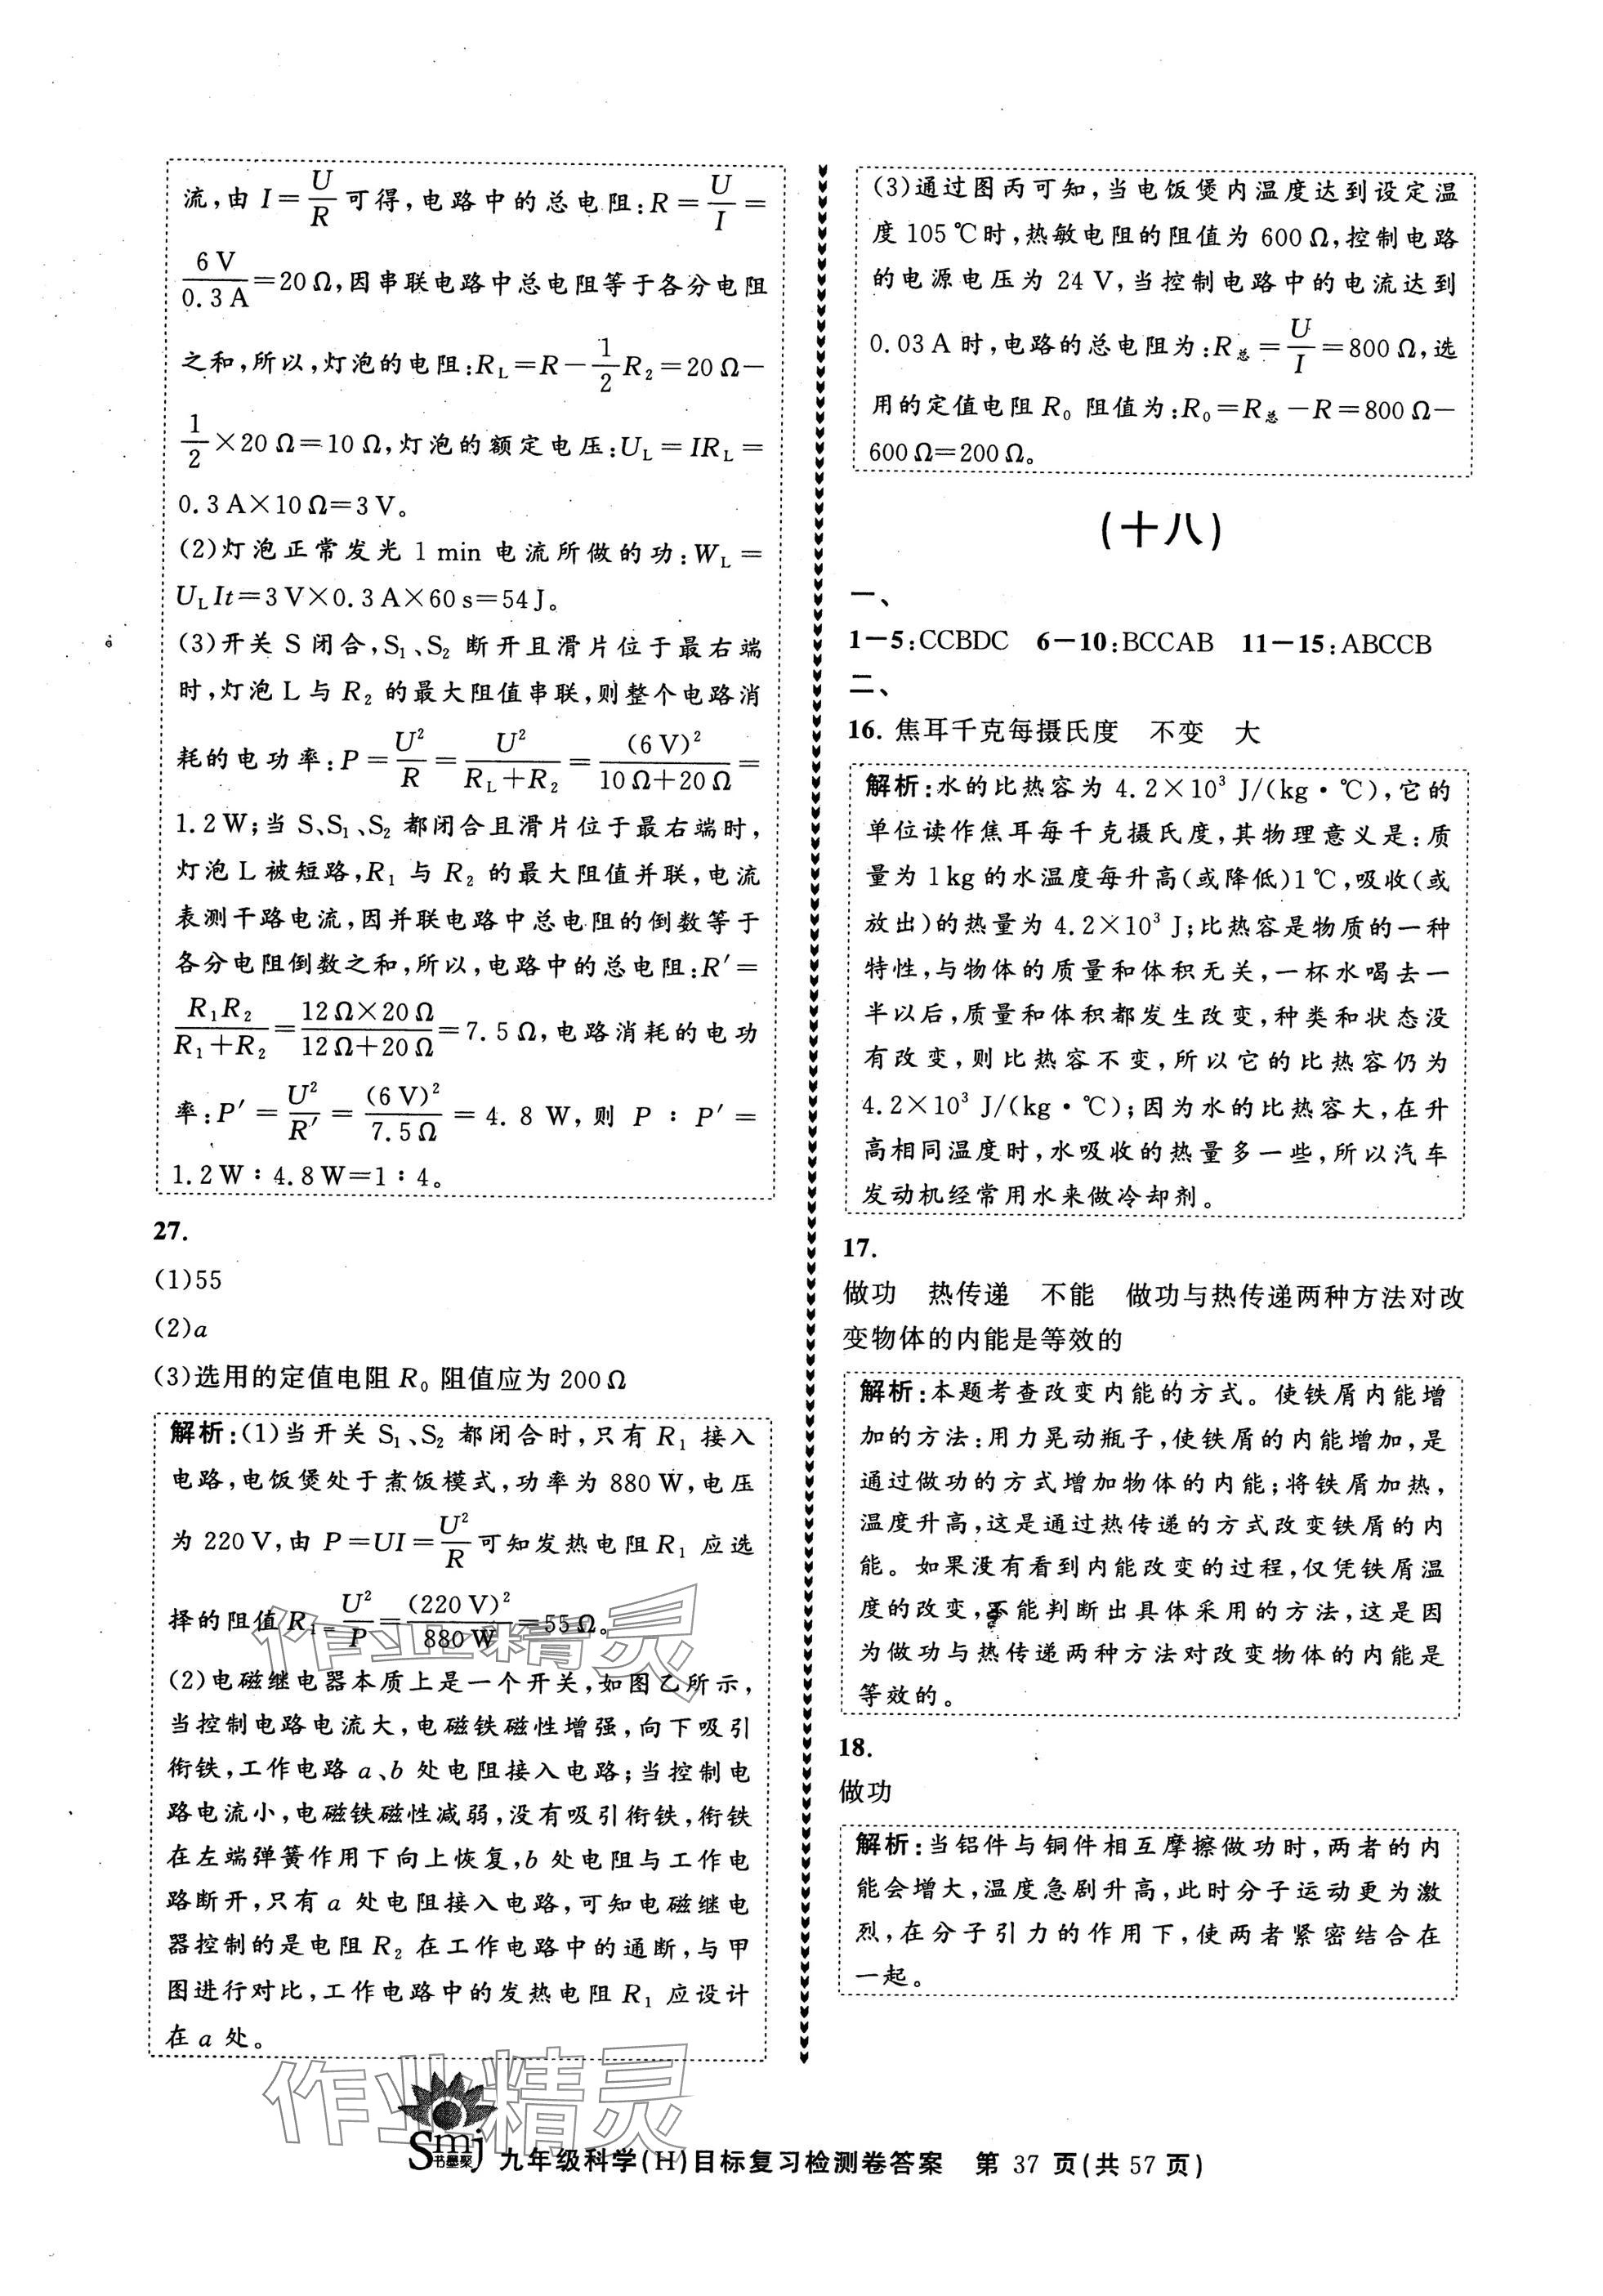 流,由 I=U/R 可得,电路中的总电阻:R=U/I=
6 V/0.3 A=20 Ω,因串联电路中总电阻等于各分电阻
之和,所以,灯泡的电阻:R_L=R-1/2 R₂=20 Ω-
1/2×20 Ω=10 Ω,灯泡的额定电压:U_L=IR_L=
0.3 A×10 Ω=3 V。
(2)灯泡正常发光 1 min 电流所做的功:W_L=
U_L It=3 V×0.3 A×60 s=54 J。
(3)开关 S 闭合,S₁、S₂ 断开且滑片位于最右端
时,灯泡 L 与 R₂ 的最大阻值串联,则整个电路消
耗的电功率:P=U²/R=U²/(R_L+R₂)=(6 V)²/(10 Ω+20 Ω)=
1.2 W;当 S、S₁、S₂ 都闭合且滑片位于最右端时,
灯泡 L 被短路,R₁ 与 R₂ 的最大阻值并联,电流
表测干路电流,因并联电路中总电阻的倒数等于
各分电阻倒数之和,所以,电路中的总电阻:R′=
R₁R₂/(R₁+R₂)=(12 Ω×20 Ω)/(12 Ω+20 Ω)=7.5 Ω,电路消耗的电功
率:P′=U²/R′=(6 V)²/7.5 Ω=4.8 W,则 P:P′=
1.2 W:4.8 W=1:4。
27.
(1)55
(2)a
(3)选用的定值电阻 R₀ 阻值应为 200 Ω
解析:(1)当开关 S₁、S₂ 都闭合时,只有 R₁ 接入
电路,电饭煲处于煮饭模式,功率为 880 W,电压
为 220 V,由 P=UI=U²/R 可知发热电阻 R₁ 应选
择的阻值 R₁=U²/P=(220 V)²/880 W=55 Ω。
(2)电磁继电器本质上是一个开关,如图乙所示,
当控制电路电流大,电磁铁磁性增强,向下吸引
衔铁,工作电路 a、b 处电阻接入电路;当控制电
路电流小,电磁铁磁性减弱,没有吸引衔铁,衔铁
在左端弹簧作用下向上恢复,b 处电阻与工作电
路断开,只有 a 处电阻接入电路,可知电磁继电
器控制的是电阻 R₂ 在工作电路中的通断,与甲
图进行对比,工作电路中的发热电阻 R₁ 应设计
在 a 处。
(3)通过图丙可知,当电饭煲内温度达到设定温
度 105 ℃时,热敏电阻的阻值为 600 Ω,控制电路
的电源电压为 24 V,当控制电路中的电流达到
0.03 A 时,电路的总电阻为:R总=U/I=800 Ω,选
用的定值电阻 R₀ 阻值为:R₀=R总-R=800 Ω-
600 Ω=200 Ω。
(十八)
一、
1-5:CCBDC 6-10:BCCAB 11-15:ABCCB
二、
16. 焦耳千克每摄氏度 不变 大
解析:水的比热容为 4.2×10³ J/(kg·℃),它的
单位读作焦耳每千克摄氏度,其物理意义是:质
量为 1 kg 的水温度每升高(或降低)1 ℃,吸收(或
放出)的热量为 4.2×10³ J;比热容是物质的一种
特性,与物体的质量和体积无关,一杯水喝去一
半以后,质量和体积都发生改变,种类和状态没
有改变,则比热容不变,所以它的比热容仍为
4.2×10³ J/(kg·℃);因为水的比热容大,在升
高相同温度时,水吸收的热量多一些,所以汽车
发动机经常用水来做冷却剂。
17.
做功 热传递 不能 做功与热传递两种方法对改
变物体的内能是等效的
解析:本题考查改变内能的方式。使铁屑内能增
加的方法:用力晃动瓶子,使铁屑的内能增加,是
通过做功的方式增加物体的内能;将铁屑加热,
温度升高,这是通过热传递的方式改变铁屑的内
能。如果没有看到内能改变的过程,仅凭铁屑温
度的改变,不能判断出具体采用的方法,这是因
为做功与热传递两种方法对改变物体的内能是
等效的。
18.
做功
解析:当铝件与铜件相互摩擦做功时,两者的内
能会增大,温度急剧升高,此时分子运动更为激
烈,在分子引力的作用下,使两者紧密结合在
一起。
作业精灵
作业精灵
Smj
书墨聚
九年级科学(H)目标复习检测卷答案 第 37 页(共 57 页)